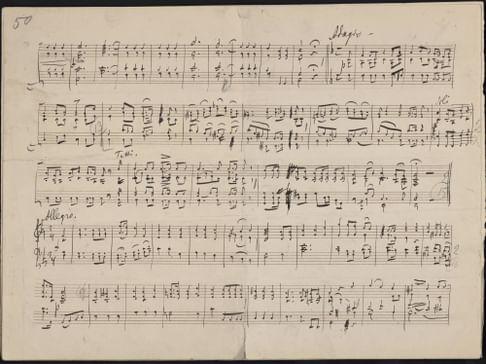 50
Adagio -
Tutti.
Allegro.